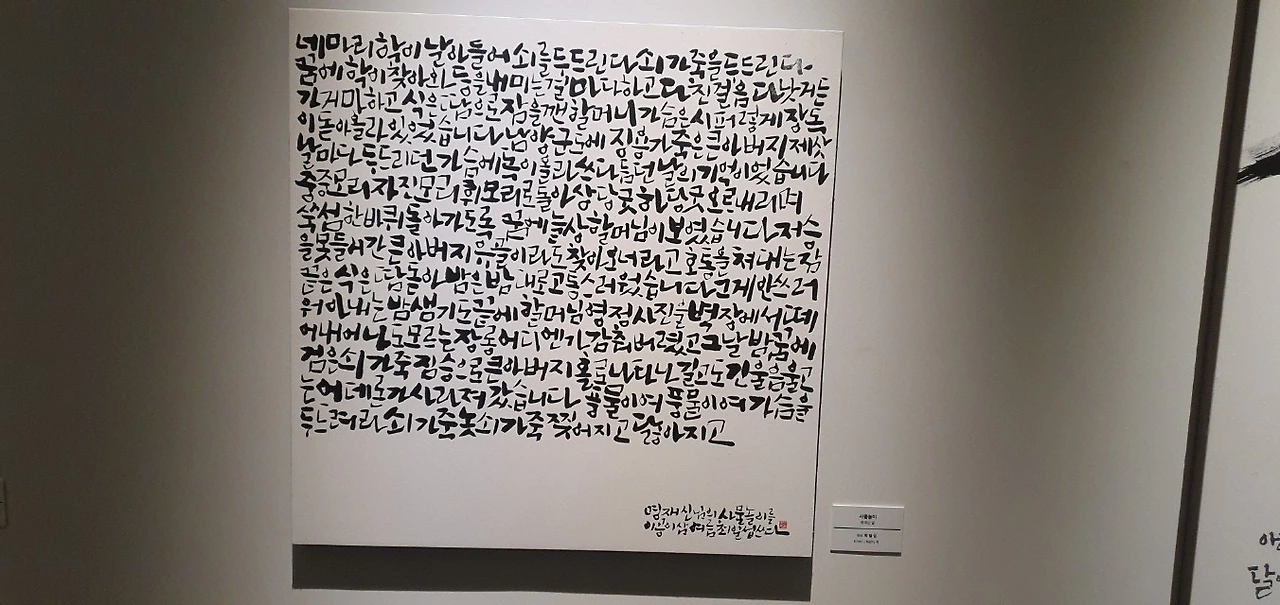 네마리 학이 날아들어 쇠를 두드린다 쇠가죽을 두드린다
꿈에 학이 찾아와 등을 내미는 걸 마다하고 다 친걸음 다 낫거든
가거마 하고 식은땀으로 잠을 깬 할머니 가슴은 시퍼렇게 장독
이 돋아 올라 있었습니다 남양군도에 징용가 죽은 큰아버지 제삿
날마다 두드리던 가슴에 녹이 올라 쓰다듬던 날의 기억이었습니다
중중모리 자진모리 휘모리로 돌아 상당굿 하당굿 오르내리며
쑥섬 한바퀴 돌아가도록 끝에 늘상 할머님이 보였습니다 저승
을 못 들어간 큰아버지 유골이라도 찾아오너라고 호통을 쳐대는 잠
끝은 식은땀 돋아 밤은 밤대로 고통스러웠습니다 눈게 안쓰러
워 아내는 밤샘기도 끝에 할머님 영정사진을 벽장에서 떼
어내어 남도 모르는 장롱 어디엔가 감춰버렸고 그날 밤 꿈에
검은 쇠가죽 짐승으로 큰아버지 홀로 나타나 길고도 긴 울음 울고
는 어데론가 사라져 갔습니다 풍물이여 풍물이여 가슴을
두드려라 쇠가죽 놋쇠가죽 찢어지고 닳아지고
명재신님의 사물놀이를
이공이삼 여름 최일섭 쓰다
사물놀이